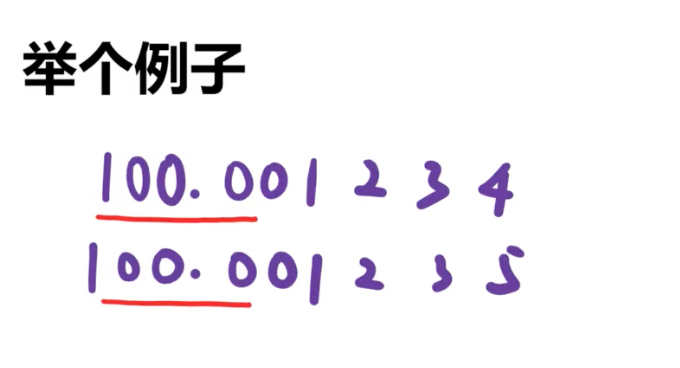 举个例子
100.001234
100.001235